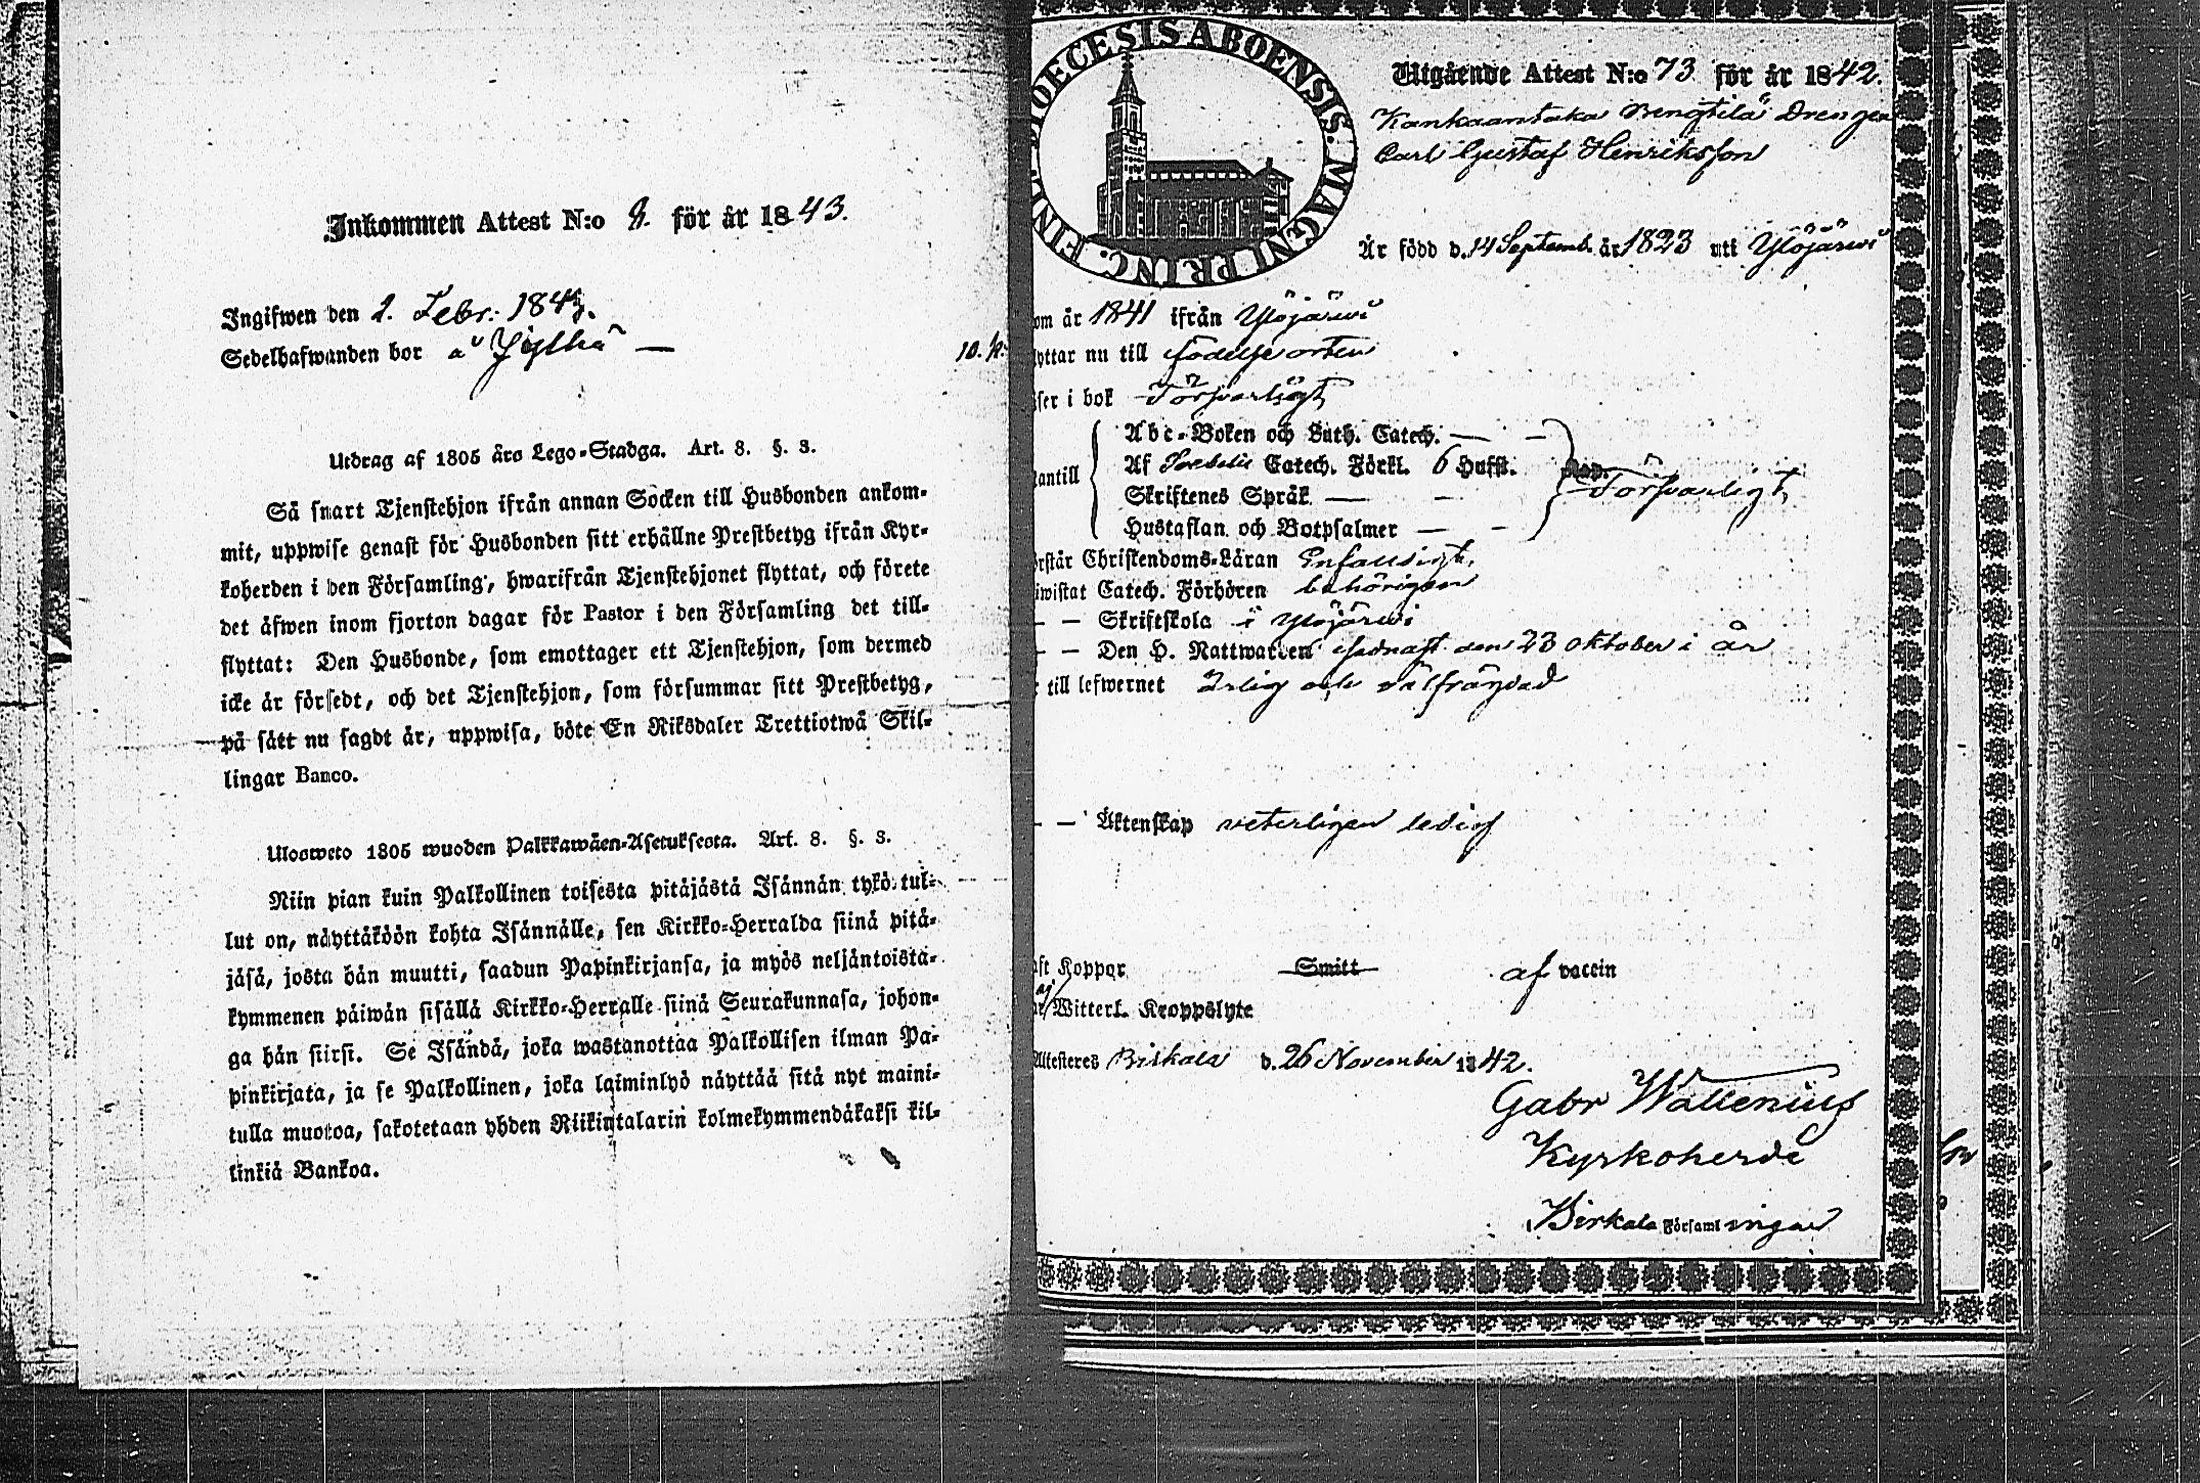 Inkommen Attest N:o för år 1843.
Ingifwen den 2. Febr. 1843.
Sedelhafwanden bor å
10.
Utdrag af 1805 års Lego-Stadga. Art. 8. §. 3.
Så snart Tjenstehjon ifrån annan Socken till Husbonden ankom-
mit, uppwise genast för Husbonden sitt erhållne Prestbetyg ifrån Kyr-
koherden i den Församling, hwarifrån Tjenstehjonet flyttat, och förete
det äfwen inom fjorton dagar för Pastor i den Församling det till-
flyttat: Den Husbonde, som emottager ett Tjenstehjon, som dermed
icke är försedt, och det Tjenstehjon, som försummar sitt Prestbetyg,
på sätt nu sagdt är, uppwisa, böte En Riksdaler Trettiotwå Skil-
lingar Banco.
Ulosweto 1805 wuoden Palkkawäen-Asetuksesta. Art. 8. §. 3.
Niin pian kuin Palkollinen toisesta pitäjästä Isännän tykö tul-
lut on, näyttäköön kohta Isännälle, sen Kirkko-Herralda siinä pitä-
jäsä, josta hän muutti, saadun Papinkirjansa, ja myös neljäntoista-
kymmenen päiwän sisällä Kirkko-Herralle siinä Seurakunnasa, johon-
ga hän siirsi. Se Isändä, joka wastanottaa Palkollisen ilman Pa-
pinkirjata, ja se Palkollinen, joka laiminlyö näyttää sitä nyt maini-
tulla muotoa, sakotetaan yhden Riikintalarin kolmekymmendäkaksi kil-
linkiä Bankoa.
DIOECESIS ABOENSIS. MAGNI PRINC. FIN
Utgående Attest N:o 73 för år 1842.
Kankaantaka Bengtilä Drengen
Carl Gustaf Henriksson
Är född d. 14 Septemb. år 1823 uti Ylöjärwi
om år 1841 ifrån Ylöjärwi
lyttar nu till födelse orten
ser i bok Försvarligt
Abc-Boken och Luth. Catech. — —
Af Svebelii Catech. Förkl. 6 Hufst.
antill
Försvarligt
Skriftenes Språk — —
Hustaflan och Botpsalmer — —
rstår Christendoms-Läran Enfaldigt.
iwistat Catech. Förhören behörigen
— — Skriftskola i Ylöjärwi
— — Den H. Nattwarden sednast den 23 oktober i år
till lefwernet ärlig och välfrägdad
— — Äktenskap veterligen ledig
ft Koppor Smitt af vaccin
ej
Witterl. Kroppslyte
Attesteres Birkala d. 26 November 1842.
Gabr Wallenius
Kyrkoherde
i Birkala Församlingar